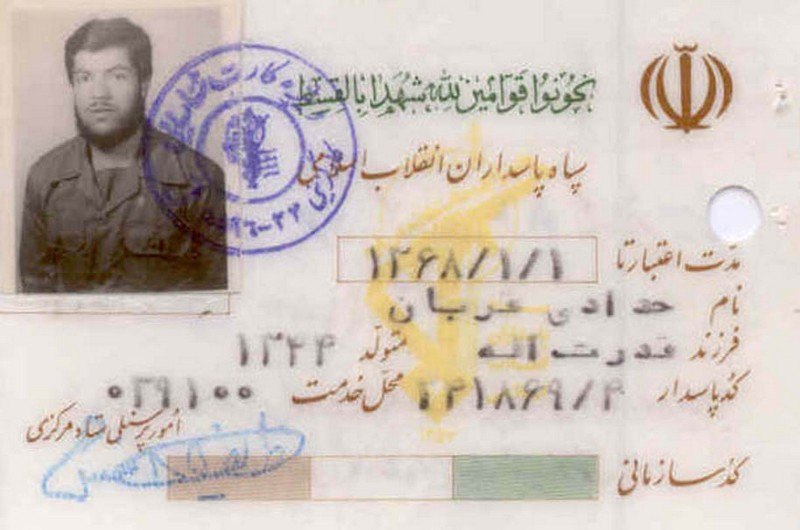 کونوا قوامین لله شهداء بالقسط
سپاه پاسداران انقلاب اسلامی
مدت اعتبار تا ۱۳۶۸/۱/۱
نام حدادی عربان
فرزند قدرت اله متولد ۱۳۴۴
کد پاسدار ۲۲۱۸۶۹/۴ محل خدمت ۰۲۹۱۰۰
امور پرسنلی ستاد مرکزی
کد سازمانی